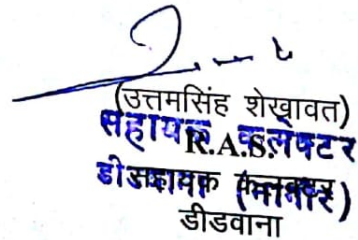 (उत्तमसिंह शेखावत)
सहायक कलेक्टर
R.A.S.
डीडवाना (नागौर)
सहायक कलक्टर
डीडवाना